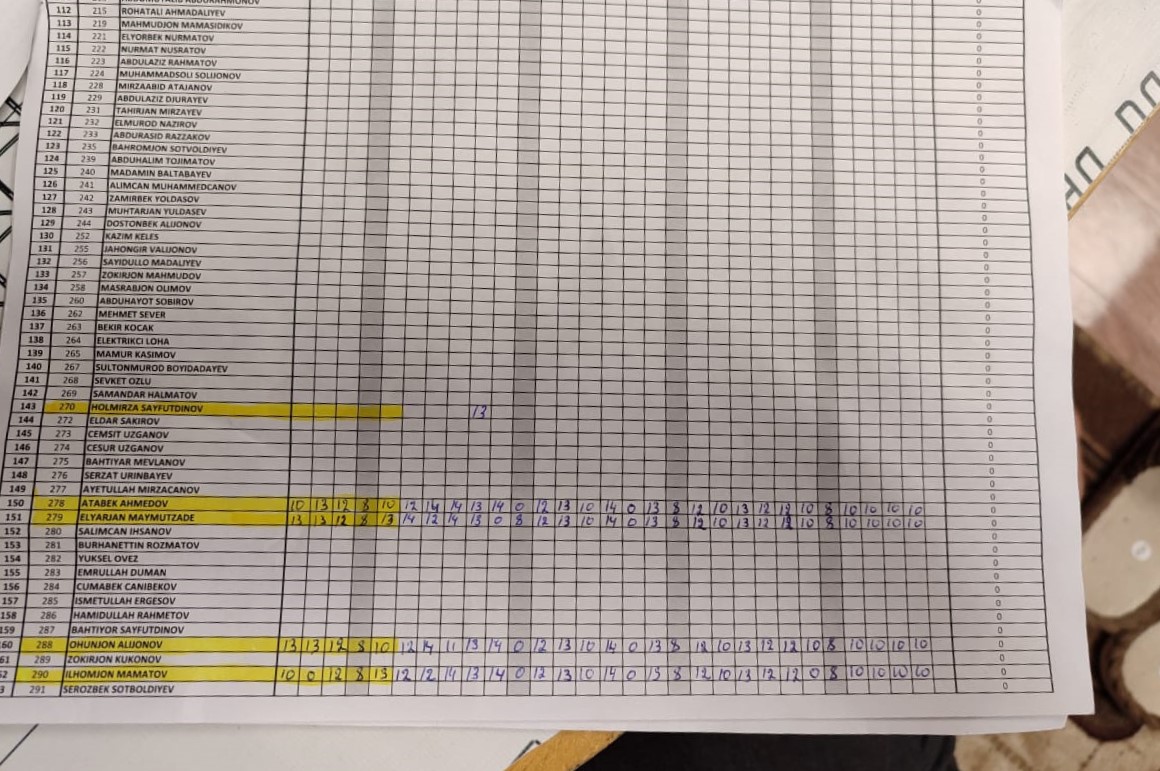 112 215 ROHATALI AHMADALIYEV 0
113 219 MAHMUDJON MAMASIDIKOV 0
114 221 ELYORBEK NURMATOV 0
115 222 NURMAT NUSRATOV 0
116 223 ABDULAZIZ RAHMATOV 0
117 224 MUHAMMADSOLI SOLIJONOV 0
118 228 MIRZAABID ATAJANOV 0
119 229 ABDULAZIZ DJURAYEV 0
120 231 TAHIRJAN MIRZAYEV 0
121 232 ELMUROD NAZIROV 0
122 233 ABDURASID RAZZAKOV 0
123 235 BAHROMJON SOTVOLDIYEV 0
124 239 ABDUHALIM TOJIMATOV 0
125 240 MADAMIN BALTABAYEV 0
126 241 ALIMCAN MUHAMMEDCANOV 0
127 242 ZAMIRBEK YOLDASOV 0
128 243 MUHTARJAN YULDASEV 0
129 244 DOSTONBEK ALIJONOV 0
130 252 KAZIM KELES 0
131 255 JAHONGIR VALIJONOV 0
132 256 SAYIDULLO MADALIYEV 0
133 257 ZOKIRJON MAHMUDOV 0
134 258 MASRABJON OLIMOV 0
135 260 ABDUHAYOT SOBIROV 0
136 262 MEHMET SEVER 0
137 263 BEKIR KOCAK 0
138 264 ELEKTRIKCI LOHA 0
139 265 MAMUR KASIMOV 0
140 267 SULTONMUROD BOYIDADAYEV 0
141 268 SEVKET OZLU 0
142 269 SAMANDAR HALMATOV 0
143 270 HOLMIRZA SAYFUTDINOV 13 0
144 272 ELDAR SAKIROV 0
145 273 CEMSIT UZGANOV 0
146 274 CESUR UZGANOV 0
147 275 BAHTIYAR MEVLANOV 0
148 276 SERZAT URINBAYEV 0
149 277 AYETULLAH MIRZACANOV 0
150 278 ATABEK AHMEDOV 10 13 12 8 10 12 14 14 13 14 0 12 13 10 14 0 13 8 12 10 13 12 12 10 8 10 10 10 10 0
151 279 ELYARJAN MAYMUTZADE 13 13 12 8 13 14 12 14 13 0 8 12 13 10 14 0 13 8 12 10 13 12 12 10 8 10 10 10 10 0
152 280 SALIMCAN IHSANOV 0
153 281 BURHANETTIN ROZMATOV 0
154 282 YUKSEL OVEZ 0
155 283 EMRULLAH DUMAN 0
156 284 CUMABEK CANIBEKOV 0
157 285 ISMETULLAH ERGESOV 0
158 286 HAMIDULLAH RAHMETOV 0
159 287 BAHTIYOR SAYFUTDINOV 0
60 288 OHUNJON ALIJONOV 13 13 12 8 10 12 14 11 13 14 0 12 13 10 14 0 13 8 12 10 13 12 12 10 8 10 10 10 10 0
61 289 ZOKIRJON KUKONOV 0
2 290 ILHOMJON MAMATOV 10 0 12 8 13 12 12 14 13 14 0 12 13 10 14 0 13 8 12 10 13 12 12 0 8 10 10 10 10 0
3 291 SEROZBEK SOTBOLDIYEV 0